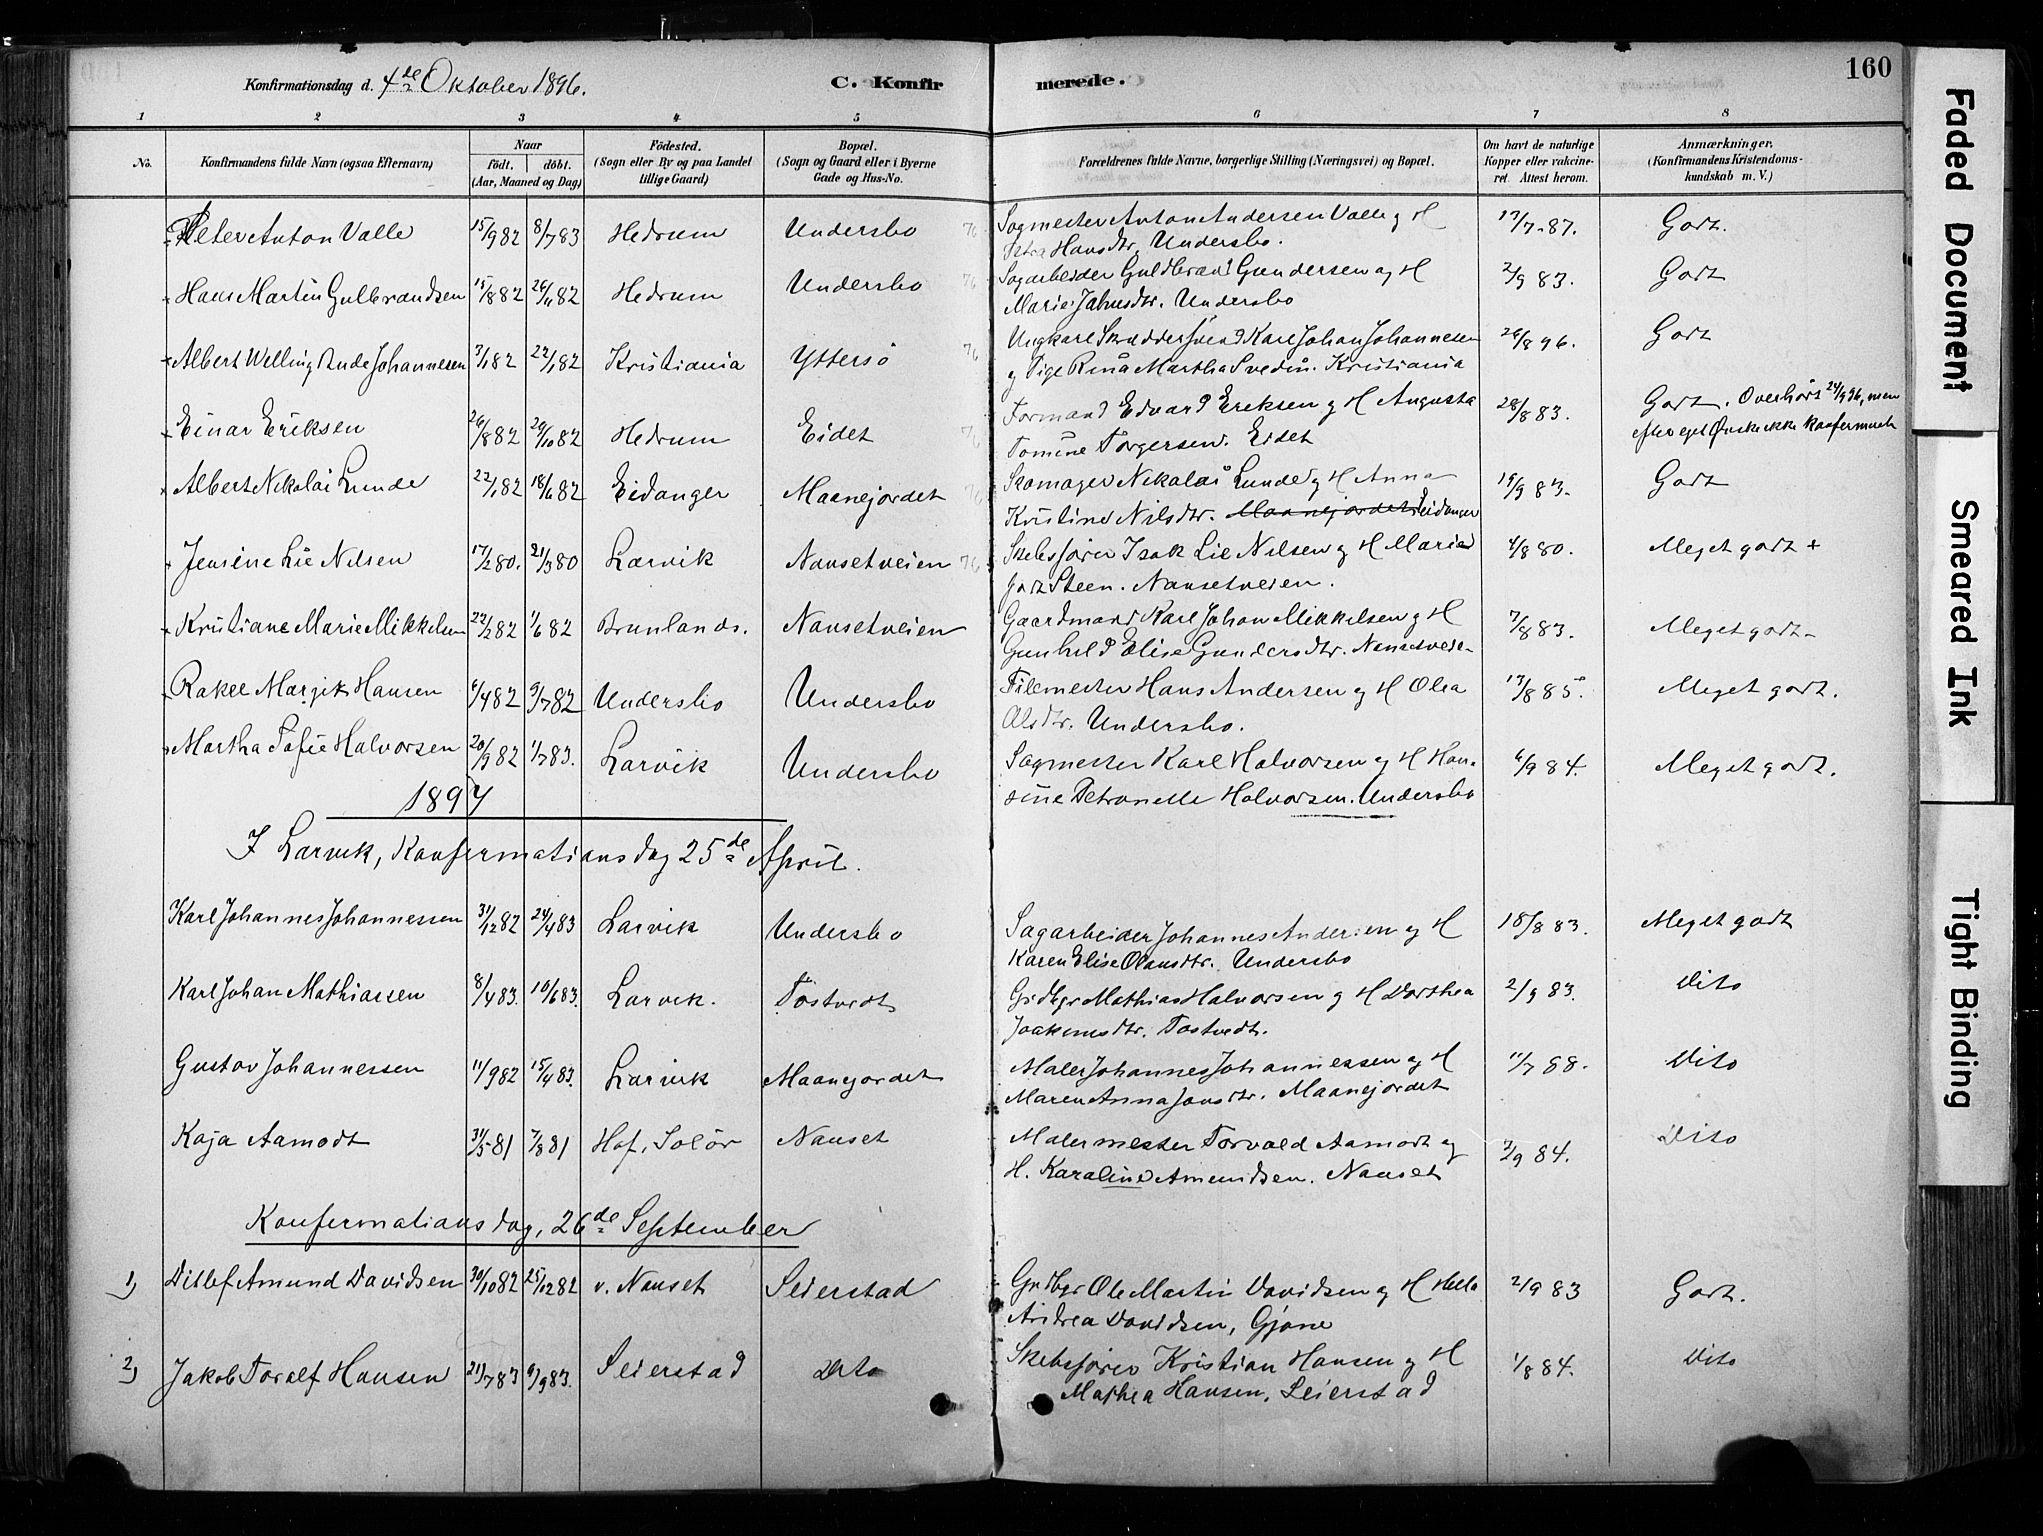 160
Konfirmationsdag d. 4de Oktober 1896.
C. Konfir merede.
1 2 3 4 5 6 7 8
No.
Konfirmandens fulde Navn (ogsaa Efternavn)
Naar
født. døbt.
(Aar, Maaned og Dag)
Fødested.
(Sogn eller By og paa Landet
tillige Gaard)
Bopæl.
(Sogn og Gaard eller i Byerne
Gade og Hus-No.
Forældrenes fulde Navne, borgerlige Stilling (Næringsvei) og Bopæl.
Om havt de naturlige
Kopper eller vakcine-
ret. Attest herom.
Anmærkninger.
(Konfirmandens Kristendoms-
kundskab m. V.)
Peter Anton Valle 15/9 82 8/7 83 Hedrum Undersbo Sagmester Anton Andersen Valle og H 17/7-87. Godt.
Petra Hansdtr, Undersbo.
Hans Martin Gulbrandsen 15/8 82 26/11 82 Hedrum Undersbo Sagarbeider Guldbrand Gundersen og H 2/9 83. Godt
Marie Jahnsdtr. Undersbo
Albert Welling Rude Johannesen 3/1 82 22/1 82 Kristiania Yttersø Ungkarl Skræddersvend Karl Johan Johannesen 26/8 96. Godt
og Pige Rina Martha Svedin. Kristiania
Einar Eriksen 26/8 82 29/10 82 Hedrum Eidet Formand Edvard Eriksen og H Augusta 28/8 83. Godt. Overhørt 24/9 96, men
Tomine Torgersen. Eidet efter eget Ønske ikke konfirmeret
Albert Nikolai Lunde 22/1 82 18/6 82 Eidanger Maanejordet Skomager Nikolai Lunde og H Anna 19/9 83. Godt
Kristine Nilsdtr. Maanejordet Eidanger
Jensine Lie Nilsen 17/2 80. 21/3 80 Larvik Nansetveien Skibsfører Isak Lie Nilsen og H Marie 4/8 80. Meget godt +
født Steen. Nansetveien.
Kristiane Marie Mikkelsen 22/2 82 1/6 82 Brunlands. Nansetveien Gaardmand Karl Johan Mikkelsen og H 7/8 83. Meget godt-
Gunhild Elise Gundersdtr. Nansetveien
Rakel Margit Hansen 6/4 82 9/7 82 Undersbo Undersbo Filemester Hans Andersen og H Olea 17/8 85. Meget godt.
Olsdtr. Undersbo.
Martha Sofie Halvorsen 20/9 82 1/7 83. Larvik Undersbo Sagmester Karl Halvorsen og H Han- 6/9 84. Meget godt.
sine Petronelle Halvorsen. Undersbo
1897
I Larvik, Konfirmationsdag 25de April.
Karl Johannes Johannessen 31/12 82 24/4 83 Larvik Undersbo Sagarbeider Johannes Andersen og H 18/8 83. Meget godt
Karen Elise Olausdtr. Undersbo
Karl Johan Mathiassen 8/4 83. 10/6 83. Larvik. Tostvedt Grdbgr Mathias Halvorsen og H Dorthea 2/9 83. Dito
Joakimsdtr. Tostvedt.
Gustav Johannessen 11/9 82 15/4 83. Larvik Maanejordet Maler Johannes Johannessen og H 11/7 88. Dito
Maren Anna Jonsdtr. Maanejordet
Kaja Aamodt 31/5 81 7/8 81 Hof, Solør Nanset Malermester Torvald Aamodt og 3/9 84. Dito
H. Karaline Amundsen. Nanset
Konfirmationsdag, 26de September
1) Ditlef Amund Davidsen 30/10 82 25/12 82 v. Nanset Seierstad Grdbgr Ole Martin Davidsen og H Helle 2/9 83 Godt.
Andrea Davidsen, Gjøne
2) Jakob Toralf Hansen 21/7 83 9/9 83. Seierstad Dito Skibsfører Kristian Hansen og H 1/8 84. Dito
Mathea Hansen, Seierstad
Faded Document
Smeared Ink
Tight Binding